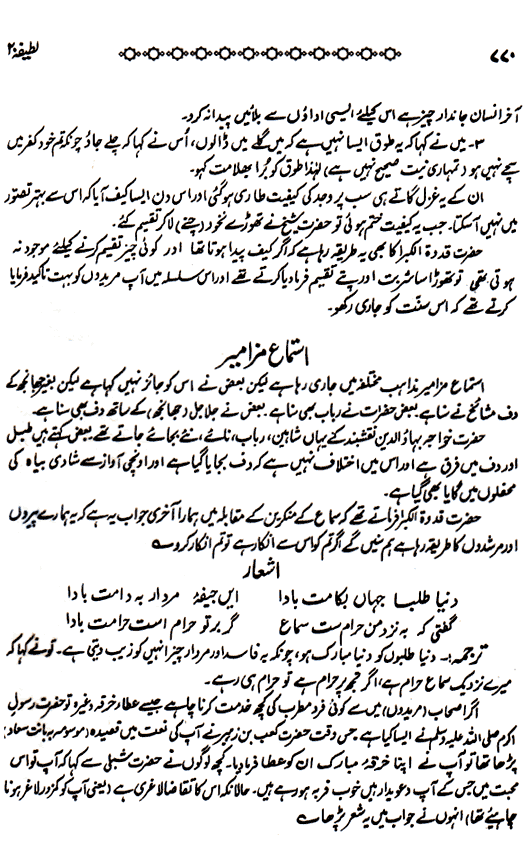 ۷۷۰
لطیفہ ۲۰
آخر انسان جاندار چیز ہے اس کیلئے ایسی اداؤں سے بلائیں پیدا نہ کرو۔
۳- میں نے کہا کہ یہ طوق ایسا نہیں ہے کہ میں گلے میں ڈالوں، اُس نے کہا کہ چلے جاؤ چونکہ تم خود کفر میں
سچے نہیں ہو (تمہاری نیت صحیح نہیں ہے) لہٰذا طوق کو بُرا بھلا مت کہو۔
ان کے یہ غزل گاتے ہی سب پر وجد کی کیفیت طاری ہوگئی اور اس دن ایسا کیف آیا کہ اس سے بہتر تصوّر
میں نہیں آسکتا۔ جب یہ کیفیت ختم ہوئی تو حضرت شیخ نے تھوڑے نخود (چنے) لاکر تقسیم کئے۔
حضرت قدوۃ الکبرا کا بھی یہ طریقہ رہا ہے کہ اگر کیف پیدا ہوتا تھا اور کوئی چیز تقسیم کرنے کیلئے موجود نہ
ہوتی تھی تو تھوڑا سا شربت اور پتے تقسیم فرما دیا کرتے تھے اور اس سلسلہ میں آپ مریدوں کو بہت تاکید فرمایا
کرتے تھے کہ اس سنّت کو جاری رکھو۔
استماع مزامیر
استماع مزامیر مذاہب مختلفہ میں جاری رہا ہے لیکن بعض نے اس کو جائز نہیں کہا ہے لیکن بغیر جھانجھ کے
دف مشائخ نے سنا ہے بعض حضرات نے رباب بھی سنا ہے۔ بعض نے جلاجل (جھانجھ) کے ساتھ دف بھی سنا ہے۔
حضرت خواجہ بہاؤ الدین نقشبند کے یہاں شاہین، رباب، نائے، نئے بجائے جاتے تھے بعض کہتے ہیں طبل
اور دف میں فرق ہے اور اس میں اختلاف نہیں ہے کہ دف بجایا گیا ہے اور اونچی آواز سے شادی بیاہ کی
محفلوں میں گایا بھی گیا ہے۔
حضرت قدوۃ الکبرا فرماتے تھے کہ سماع کے منکرین کے مقابلہ میں ہمارا آخری جواب یہ ہے کہ یہ ہمارے پیروں
اور مرشدوں کا طریقہ رہا ہے ہم سنیں گے اگر تم کو اس سے انکار ہے تو تم انکار کرو ؎
اشعار
دنیا طلبا جہاں بکامت بادا ایں جیفۂ مردار بہ دامت بادا
گفتی کہ بہ نزد من حرام ست سماع گر بر تو حرام است حرامت بادا
ترجمہ:- دنیا طلبوں کو دنیا مبارک ہو، چونکہ یہ فاسد اور مردار چیز انہیں کو زیب دیتی ہے۔ تونے کہا کہ
میرے نزدیک سماع حرام ہے، اگر تجھ پر حرام ہے تو حرام ہی رہے۔
اگر اصحاب (مریدوں) میں سے کوئی فرد مطرب کی کچھ خدمت کرنا چاہے جیسے عطار خرقہ وغیرہ تو حضرت رسول
اکرم صلی اللہ علیہ وسلم نے ایسا کیا ہے جس وقت حضرت کعب بن زہیر نے آپ کی نعت میں قصیدہ (موسومہ بہ بانت سعاد)
پڑھا تھا تو آپ نے اپنا خرقۂ مبارک ان کو عطا فرما دیا۔ کچھ لوگوں نے حضرت شبلی سے کہا کہ آپ تو اس
محبت میں جس کے آپ دعویدار ہیں خوب فربہ ہو رہے ہیں۔ حالانکہ اس کا تقاضا لاغری ہے (یعنی آپ کو کمزور لاغر ہونا
چاہیئے تھا) انہوں نے جواب میں یہ شعر پڑھا ؎